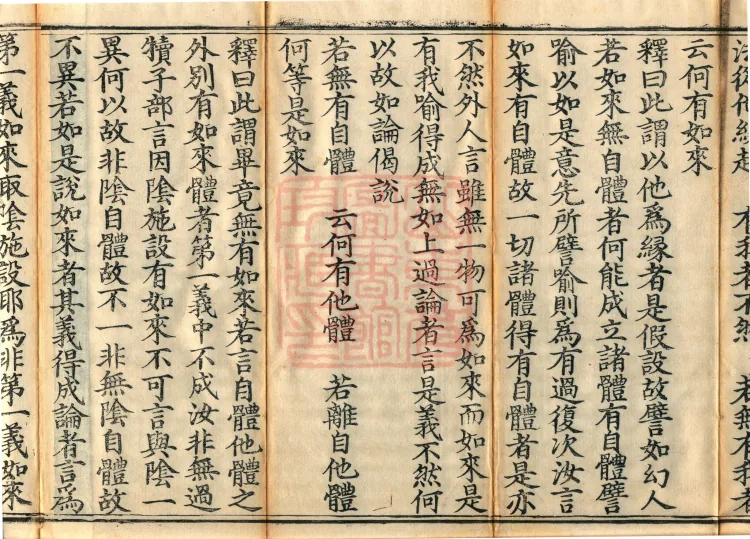 法從他緣起　有我者不然　若無有我者
云何有如來
釋曰此謂以他為緣者是假設故譬如幻人
若如來無自體者何能成立諸體有自體譬
喻以如是意先所譬喻則為有過復次汝言
如來有自體故一切諸體得有自體者是亦
不然外人言雖無一物可為如來而如來是
有我喻得成無如上過論者言是義不然何
以故如論偈說
若無有自體　云何有他體　若離自他體
何等是如來
釋曰此謂畢竟無有如來若言自體他體之
外別有如來體者第一義中不成汝非無過
犢子部言因陰施設有如來不可言與陰一
異何以故非陰自體故不一非無陰自體故
不異若如是說如來者其義得成論者言爲
第一義如來取陰施設耶爲非第一義如來